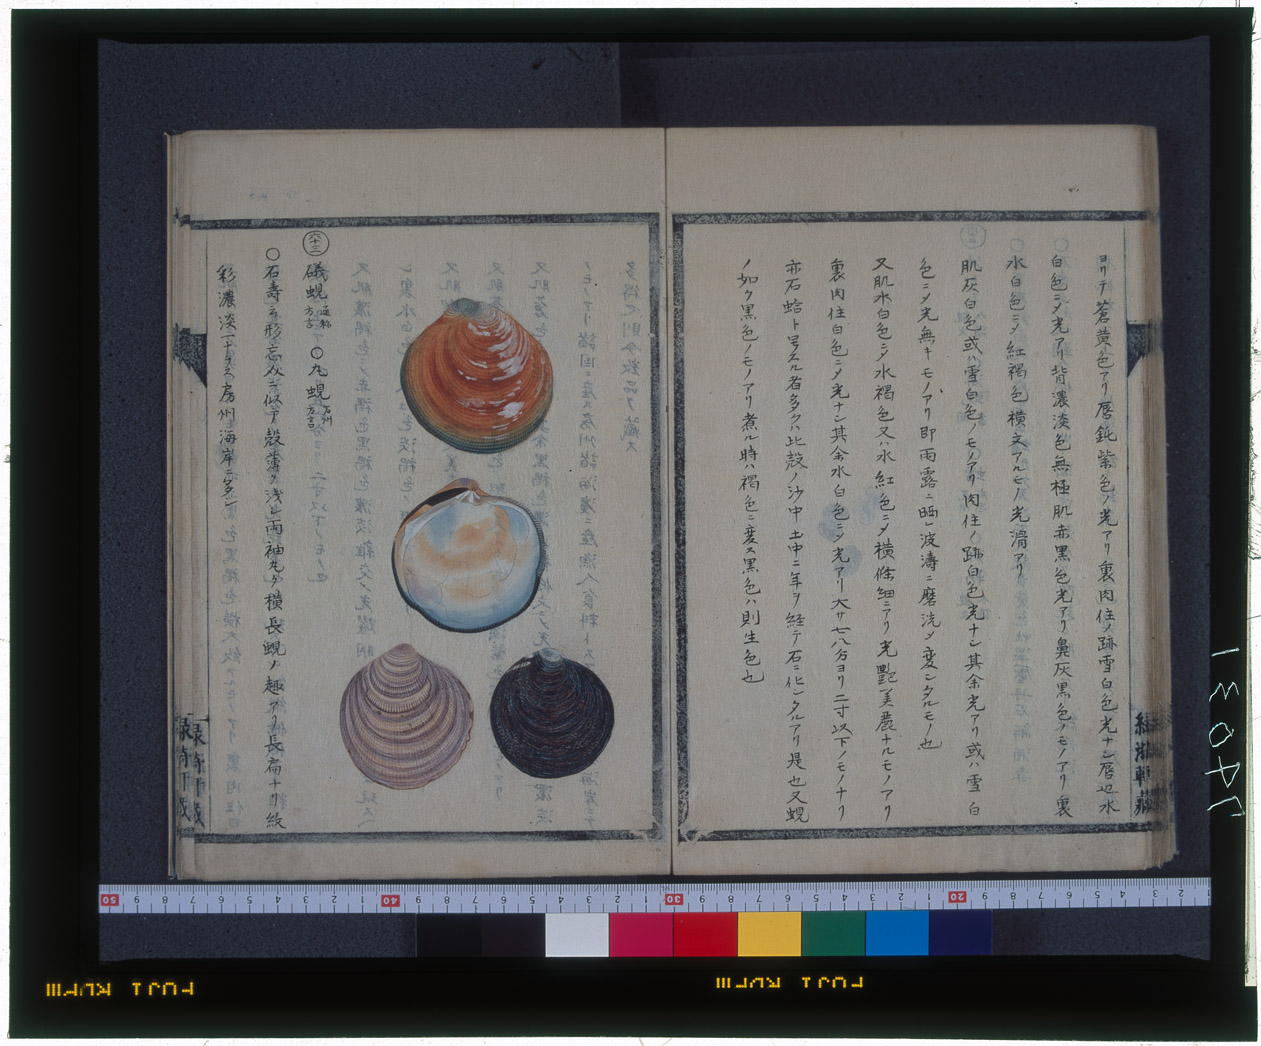 ヨリテ蒼黄色アリ唇鈍紫色ノ光アリ裏肉住ノ跡雪白色光ナシ唇辺水
白色ニ〆光アリ背濃淡色無極肌赤黒色光アリ鼻灰黒色ノモノアリ裏
水白色ニ〆紅褐色横文アルモノ光滑アリ
肌灰白色或ハ雪白色ノモノアリ肉住ノ跡白色光ナシ其余光アリ或ハ雪白
色ニ〆光無キモノアリ即雨露ニ晒シ波濤ニ磨洗〆変シタルモノ也
又肌水白色ニ〆水褐色又ハ水紅色ニ〆横條細ニアリ光艶美麗ナルモノアリ
裏肉住白色ニ〆光ナシ其余水白色ニ〆光アリ大サ七八分ヨリ二寸以下ノモノナリ
亦石蛤ト号スル者多クハ此殻ノ沙中土中ニ年ヲ経テ石ニ化シタルアリ是也又蜆
ノ如ク黒色ノモノアリ煮ル時ハ褐色ニ変ス黒色ハ則生色也
六十三
礒蜆 通称方言 〇丸蜆 石州方言
〇石寿云形忘ニ似テ殻薄ク浅シ両袖丸ク横長蜆ノ趣アリ長扁ナリ紋
彩濃淡一ナラス房州海岸ニ多シ
50 9 8 7 6 5 4 3 2 1 40 9 8 7 6 5 4 3 2 1 30 9 8 7 6 5 4 3 2 1 20 9 8 7 6 5 4 3 2 1
FUJI
FUJI